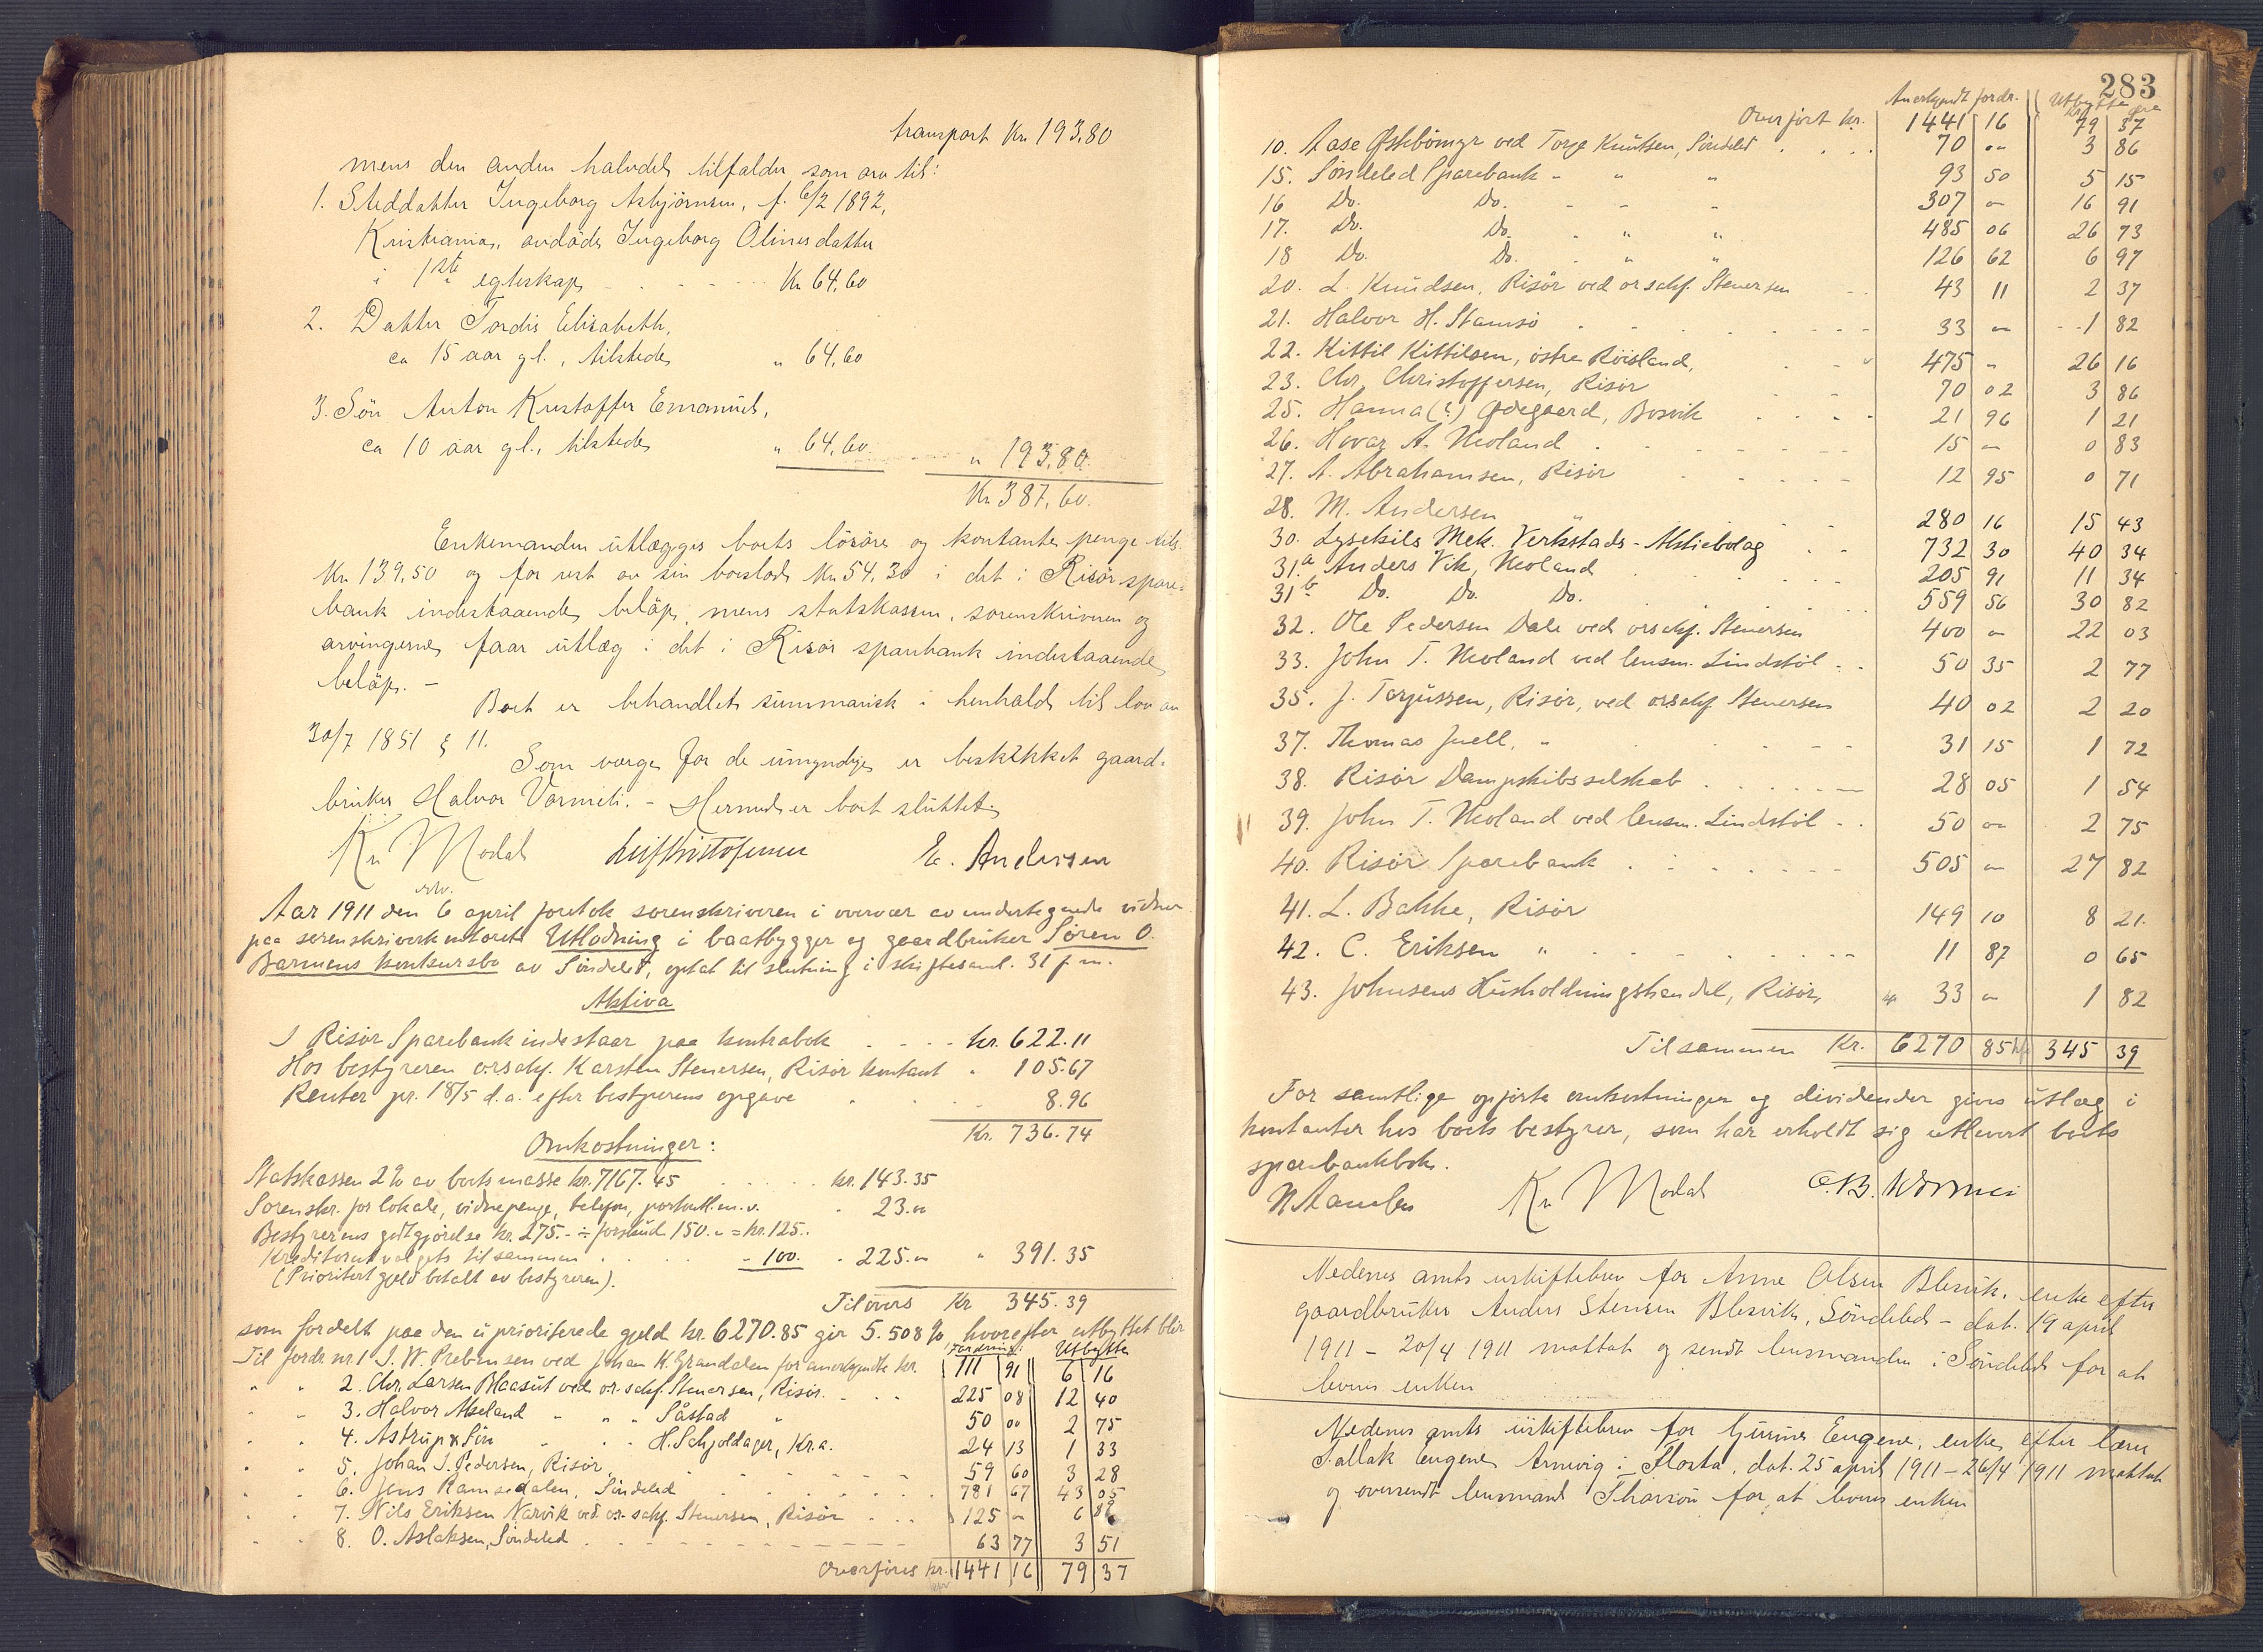 transport Kr. 193,80
mens den anden halvdel tilfalder som arv til:
1. Steddatter Ingeborg Asbjörnsen, f. 6/2 1892,
Kristiania, avdöde Ingeborg Olinesdatter
i 1ste egteskap - - - - Kr 64,60
2. Datter Tordis Elisabeth,
ca 15 aar gl., tilstede " 64,60
3. Sön Anton Kristoffer Emanuel,
ca 10 aar gl., tilstede " 64,60 " 193,80
Kr 387,60.
Enkemanden utlægges boets lösöre og kontante penge tils.
Kr 139,50 og for rest av sin boeslod Kr 54,30 i det i Risör spare-
bank indestaaende belöp, mens statskassen, sorenskriveren og
arvingerne faar utlæg i det i Risör sparebank indestaaende
belöp. -
Boet er behandlet summarisk i henhold til lov av
30/7 1851 § 11.
Som verge for de umyndige er beskikket gaard-
bruker Halvor Vormeli. - Hermed er boet sluttet.
Kr Modal Leif Kristofersen E. Andersen
Aar 1911 den 6 april foretok sorenskriveren i overvær av undertegnede vidner
paa sorenskriverkontoret Utlodning i baatbygger og gaardbruker Søren O.
Barmens konkursbo av Søndeled, optat til slutning i skiftesaml. 31 f. m.
Aktiva
I Risør Sparebank indestaar paa kontrabok - - - kr. 622.11
Hos bestyreren orsakf. Karsten Stenersen, Risør kontant " 105.67
Renter pr. 18/5 d.a. efter bestyrerens opgave 8.96
Kr. 736.74
Omkostninger:
Statskassen 2% av boets masse kr. 7167.45 kr. 143.35
Sorenskr. for lokale, vidnepenge, telefon, portoutl. m.v. " 23.00
Bestyrerens godtgjørelse kr. 275.- ÷ forskud 150.- = kr. 125.-
Kreditorutvalgets tilsammen - 100. - 225.00 " 391.35
(Prioritert gjeld betalt av bestyreren).
Tilovers Kr 345.39
som fordelt paa den uprioriterede gjeld kr. 6270.85 gir 5.508 %, hvorefter utbyttet blir
Fordring: Utbytte
Til fordr. nr. 1 I. W. Prebensen ved Johan K. Grandalen for anerkjendte kr. 111 91 6 16
" " 2. Chr. Larsen Blaasut ved or.sakf. Stenersen, Risør. 225 08 12 40
" " 3. Halvor Akeland " " " Såstad " 50 00 2 75
" " 4. Astrup & Søn " " " H. Schjoldager, Kr.a. 24 13 1 33
" " 5. Johan I. Pedersen, Risør. 59 60 3 28
" " 6. Jens Ramsdalen, Søndeled 781 67 43 05
" " 7. Nils Eriksen Narvik ved or.sakf. Stenersen, Risør 125 - 6 89
" " 8. O. Aslaksen, Søndeled 63 77 3 51
Overføres kr. 1441 16 79 37
283
Anerkjendt fordr. Utbytte
Overført kr. 1441 16 79 37
10. Aase Østebömyr ved Torge Knutsen, Söndeled 70 - 3 86
15. Söndeled Sparebank - " " 93 50 5 15
16 Do. Do. - - - 307 - 16 91
17. Do. Do. - " " 485 06 26 73
18 Do. Do. - " " 126 62 6 97
20. L. Knudsen, Risör ved orsakf. Stenersen 43 11 2 37
21. Halvor H. Stamsö 33 - 1 82
22. Kittil Kittilsen, östre Röisland, 475 - 26 16
23. Chr. Christoffersen, Risör 70 02 3 86
25. Hanna (?) Ødegaard, Bosvik 21 96 1 21
26. Hovar A. Moland 15 - 0 83
27. A. Abrahamsen, Risör 12 95 0 71
28. M. Andersen " 280 16 15 43
30. Lysekils Mek. Verkstads-Aktiebolag 732 30 40 34
31.a Anders Vik, Moland 205 91 11 34
31 b Do. Do. Do. 559 56 30 82
32. Ole Pedersen Dale ved orsakf. Stenersen 400 - 22 03
33. John T. Moland ved lensm. Lindstöl 50 35 2 77
35. J. Torjussen, Risör, ved orsakf. Stenersen 40 02 2 20
37. Thomas Juell, " 31 15 1 72
38. Risör Dampskibsselskab 28 05 1 54
39. John T. Moland ved lensm. Lindstöl 50 - 2 75
40. Risör Sparebank 505 - 27 82
41. L. Bakke, Risör 149 10 8 21.
42. C. Eriksen " 11 87 0 65
43. Johnsens Husholdningshandel, Risör, 33 - 1 82
Tilsammen Kr. 6270 85 345 39
For samtlige opførte omkostninger og dividender gives utlæg i
kontanter hos boets bestyrer, som har erholdt sig utlevert boets
sparebankbok.
Kr Modal
Nedenes amts uskiftebrev for Anne Olsen Blesvik, enke efter
gaardbruker Anders Stensen Blesvik, Söndeled - dat. 19 april
1911 - 20/4 1911 mottat og sendt lensmanden i Söndeled for at
leveres enken
Nedenes amts uskiftebrev for Gunne Eugene, enke efter lærer
Tallak Eugene Arnevig i Flosta, dat. 25 april 1911 - 26/4 1911 mottat
og oversendt lensmand for at leveres enken